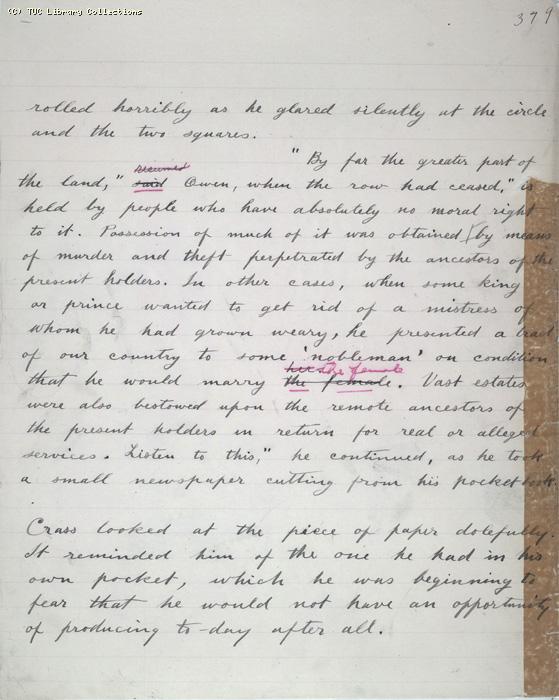 (C) TUC Library Collections
379
rolled horribly as he glared silently at the circle
and the two squares.
"By far the greater part of
resumed
the land," said Owen, when the row had ceased, "is
held by people who have absolutely no moral right
to it. Possession of much of it was obtained by means
of murder and theft perpetrated by the ancestors of the
present holders. In other cases, when some king
or prince wanted to get rid of a mistress of
whom he had grown weary, he presented a tract
of our country to some 'nobleman' on condition
her the female
that he would marry the female. Vast estates
were also bestowed upon the remote ancestors of
the present holders in return for real or alleged
services. Listen to this," he continued, as he took
a small newspaper cutting from his pocket book.
Crass looked at the piece of paper dolefully.
It reminded him of the one he had in his
own pocket, which he was beginning to
fear that he would not have an opportunity
of producing to-day after all.